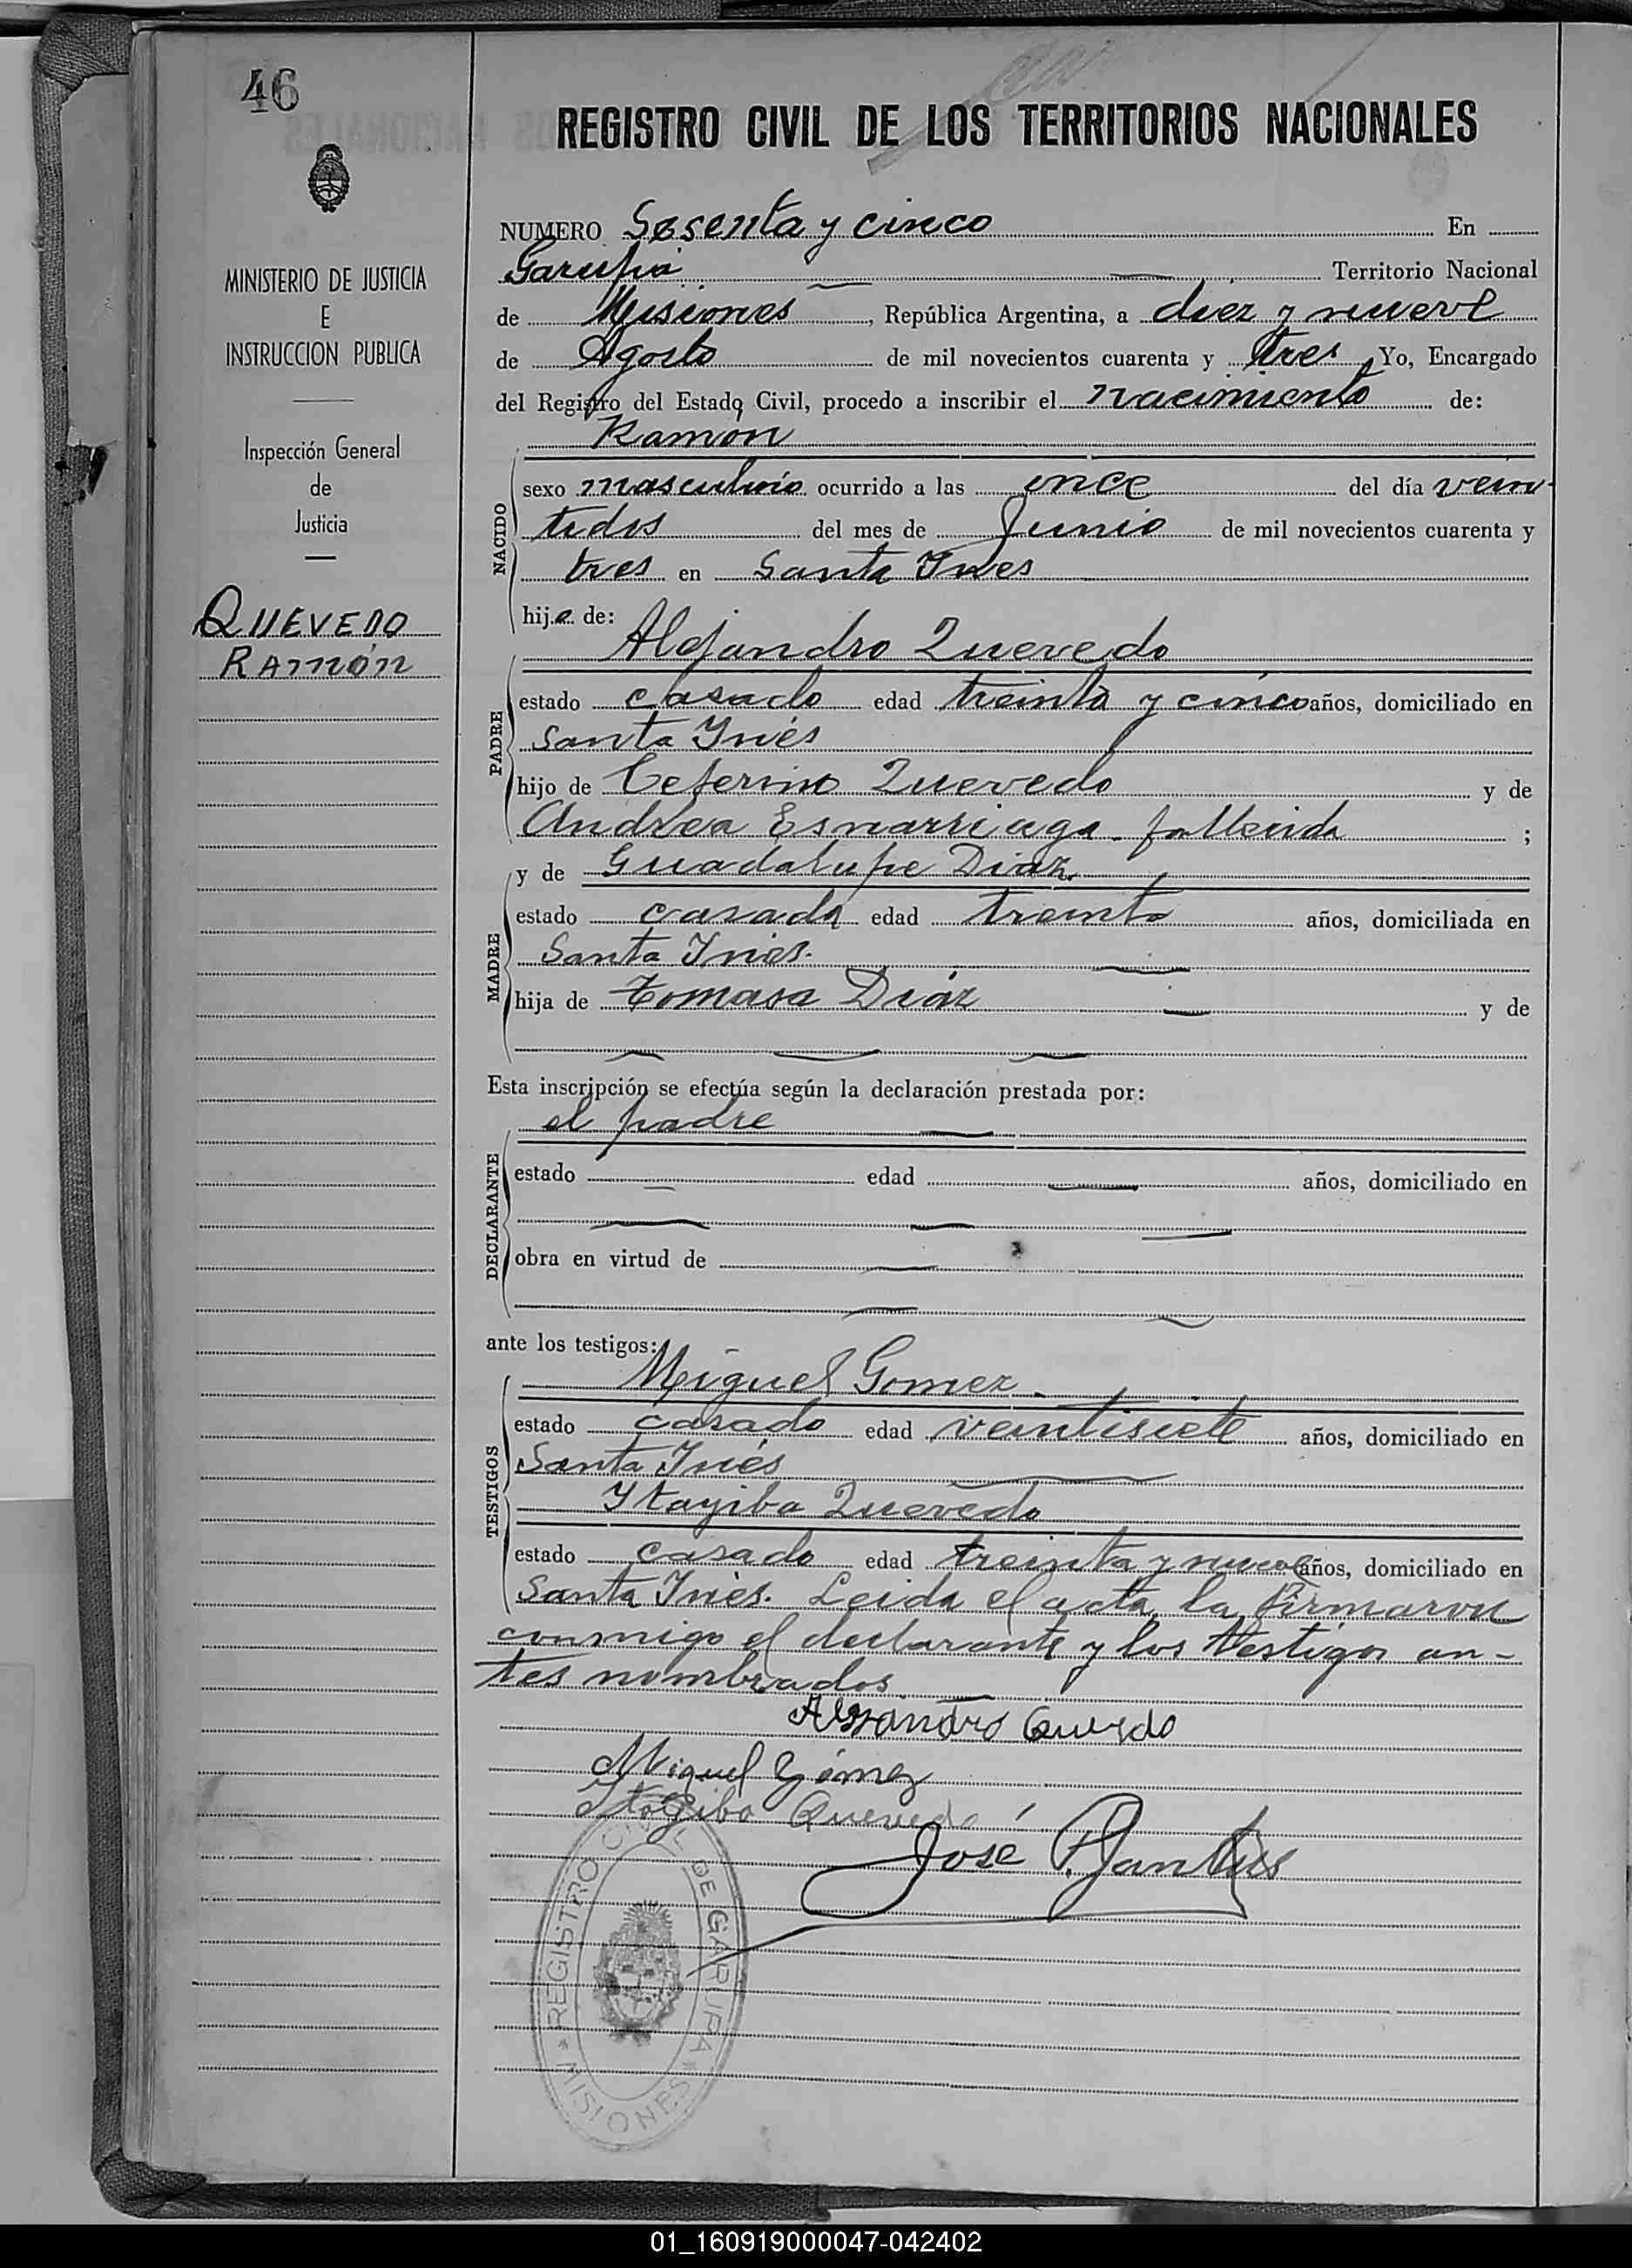 46
REGISTRO CIVIL DE LOS TERRITORIOS NACIONALES
MINISTERIO DE JUSTICIA
E
INSTRUCCION PUBLICA
Inspección General
de
Justicia
QUEVEDO
RAMÓN
NUMERO Sesenta y cinco En
Garupá Territorio Nacional
de Misiones, República Argentina, a diez y nueve
de Agosto de mil novecientos cuarenta y tres, Yo, Encargado
del Registro del Estado Civil, procedo a inscribir el nacimiento de:
Ramón
NACIDO
sexo masculino ocurrido a las once del día vein-
tidos del mes de Junio de mil novecientos cuarenta y
tres en Santa Ines
hijo de:
Alejandro Quevedo
PADRE
estado casado edad treinta y cinco años, domiciliado en
Santa Inés
hijo de Ceferino Quevedo y de
Andrea Esnarriaga - fallecida ;
y de Guadalupe Diaz.
MADRE
estado casada edad treinta años, domiciliada en
Santa Inés.
hija de Tomasa Diáz y de
Esta inscripción se efectúa según la declaración prestada por:
el padre
DECLARANTE
estado edad años, domiciliado en
obra en virtud de
ante los testigos:
Miguel Gomez.
TESTIGOS
estado casado edad veintisiete años, domiciliado en
Santa Inés
Ytagiba Quevedo
estado casado edad treinta y nueve años, domiciliado en
Santa Inés. Leida el acta, la firmaron
conmigo el declarante y los testigos an-
tes nombrados
Alejandro Quevedo
Miguel Gómez
Itagiba Quevedo
José P. Santus
REGISTRO CIVIL DE GARUPA
* MISIONES *
01_160919000047-042402